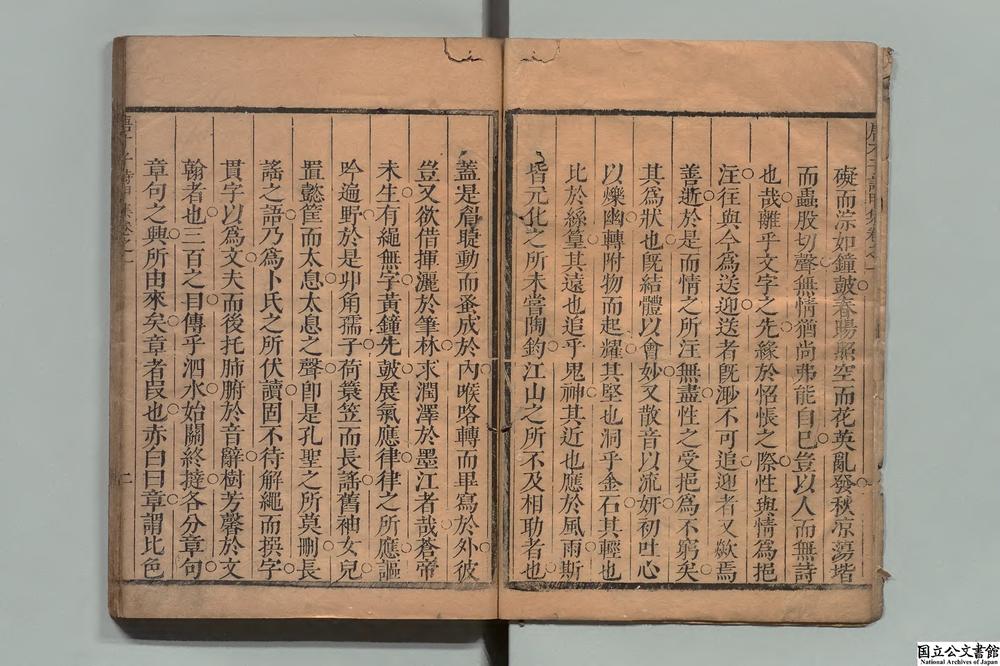 礙而淙如鐘皷春陽照空而花英亂發秋凉蕩堦
而蟲股切聲無情猶尚弗能自已豈以人而無詩
也哉離乎文字之先緣於惂悵之際性與情爲挹
注往與今爲送迎送者旣渺不可追迎者又歘焉
善逝於是而情之所注無盡性之受挹爲不窮矣
其爲狀也旣結體以會妙又散音以流妍初吐心
以爍幽轉附物而起耀其堅也洞乎金石其輕也
比於絲篁其遠也追乎鬼神其近也應於風雨斯
皆元化之所未嘗陶鈞江山之所不及相助者也
蓋是睂睫動而蚤成於內喉咯轉而畢寫於外彼
豈又欲借揮灑於筆林求潤澤於墨江者哉蒼帝
未生有繩無字黃鐘先皷展氣應律律之所應謳
吟遍野於是丱角孺子荷簑笠而長謠舊袖女兒
置懿筐而太息太息之聲卽是孔聖之所莫刪長
謠之語乃爲卜氏之所伏讀固不待解繩而撰字
貫字以爲文夫而後托肺腑於音辭樹芳馨於文
翰者也三百之目傳乎泗水始關終撻各分章句
章句之興所由來矣章者叚也亦白曰章謂比色
二
国立公文書館
National Archives of Japan